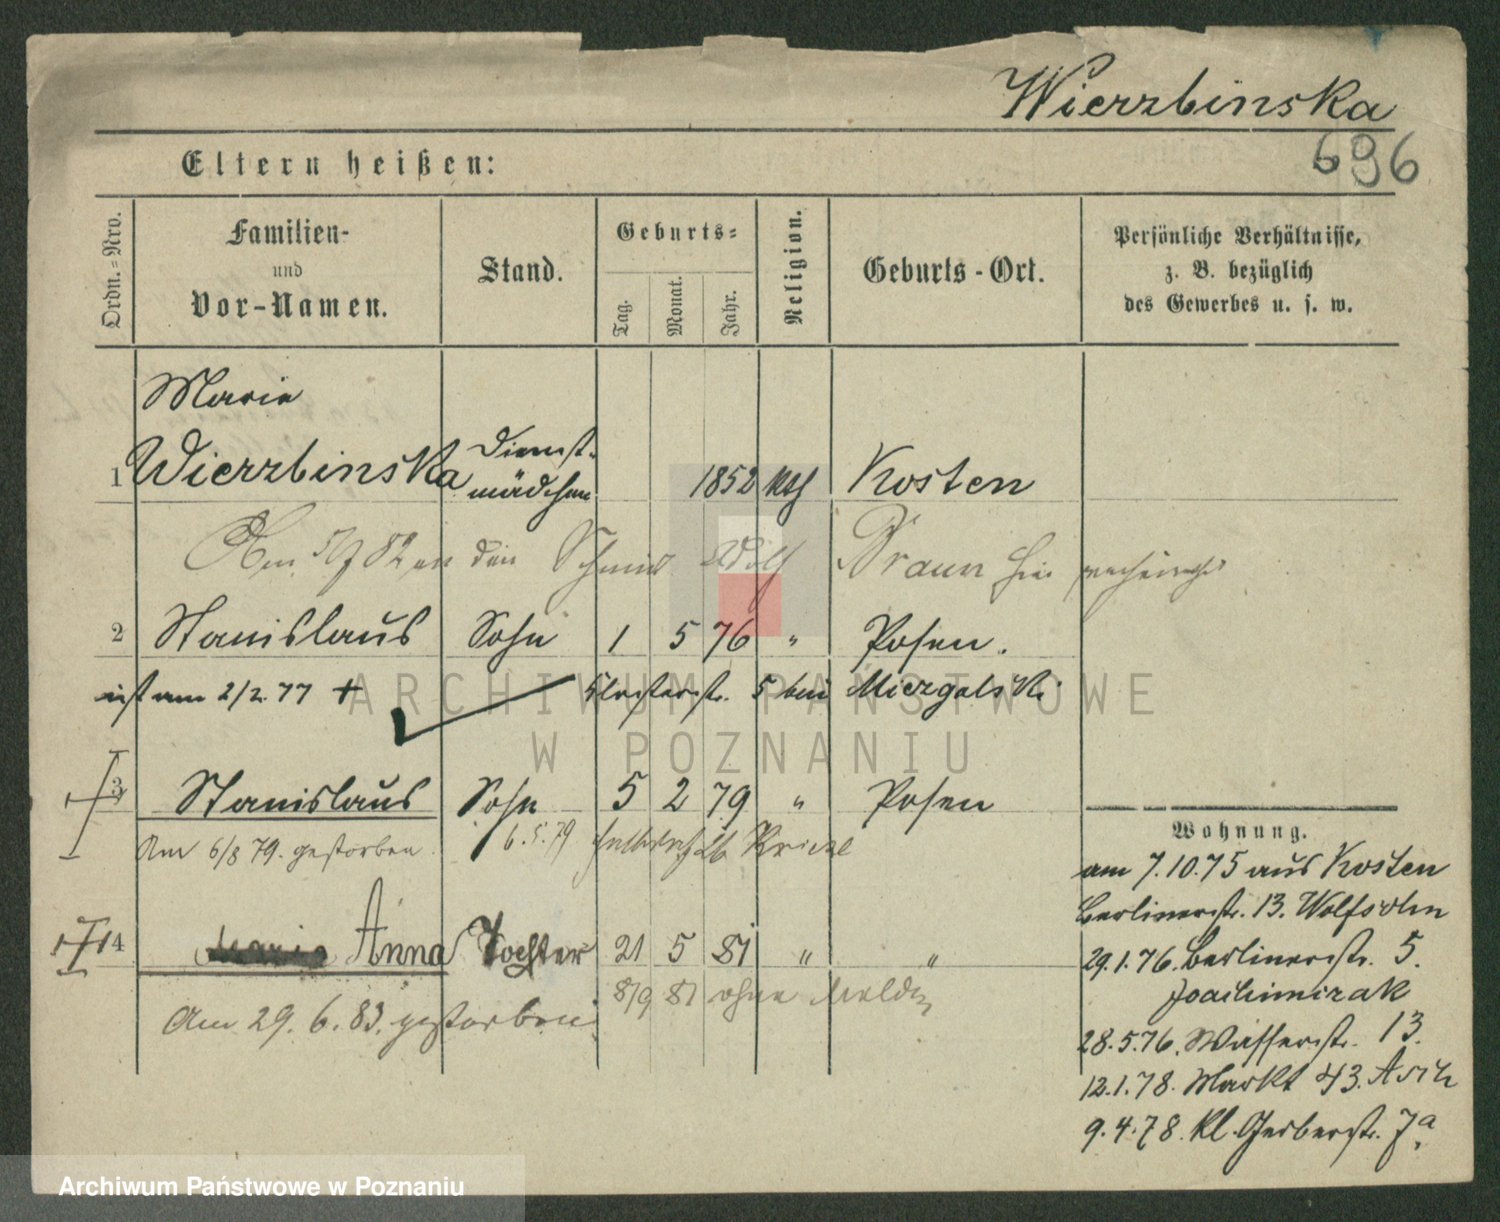 Wierzbinska
696
Eltern heißen:
Ordn.-Nro.
Familien-
und
Vor-Namen.
Stand.
Geburts-
Tag.
Monat.
Jahr.
Religion.
Geburts-Ort.
Persönliche Verhältnisse,
z. B. bezüglich
des Gewerbes u. s. w.
Marie
1 Wierzbinska Dienst-
mädchen 1852 kth Kosten
Am 5/9 82 an den Schmied Adolf Braun hier verheirathet
2 Stanislaus Sohn 1 5 76 " Posen.
ist am 2/2. 77 + Klosterstr. 5 bei
3 Stanislaus Sohn 5 2 79 " Posen
Am 6/8 79. gestorben. 6. 5. 79
4 Anna Tochter 21 5 81 " "
8/9 81 ohne
Am 29. 6. 83. gestorben
Wohnung.
am 7.10.75 aus Kosten
Berlinerstr. 13. Wolfsohn
29.1.76. Berlinerstr. 5.
28.5.76. Wasserstr. 13.
12.1.78. Markt 43. Asch
9.4.78. Kl. Gerberstr. 7a.
ARCHIWUM PAŃSTWOWE
W POZNANIU
Archiwum Państwowe w Poznaniu